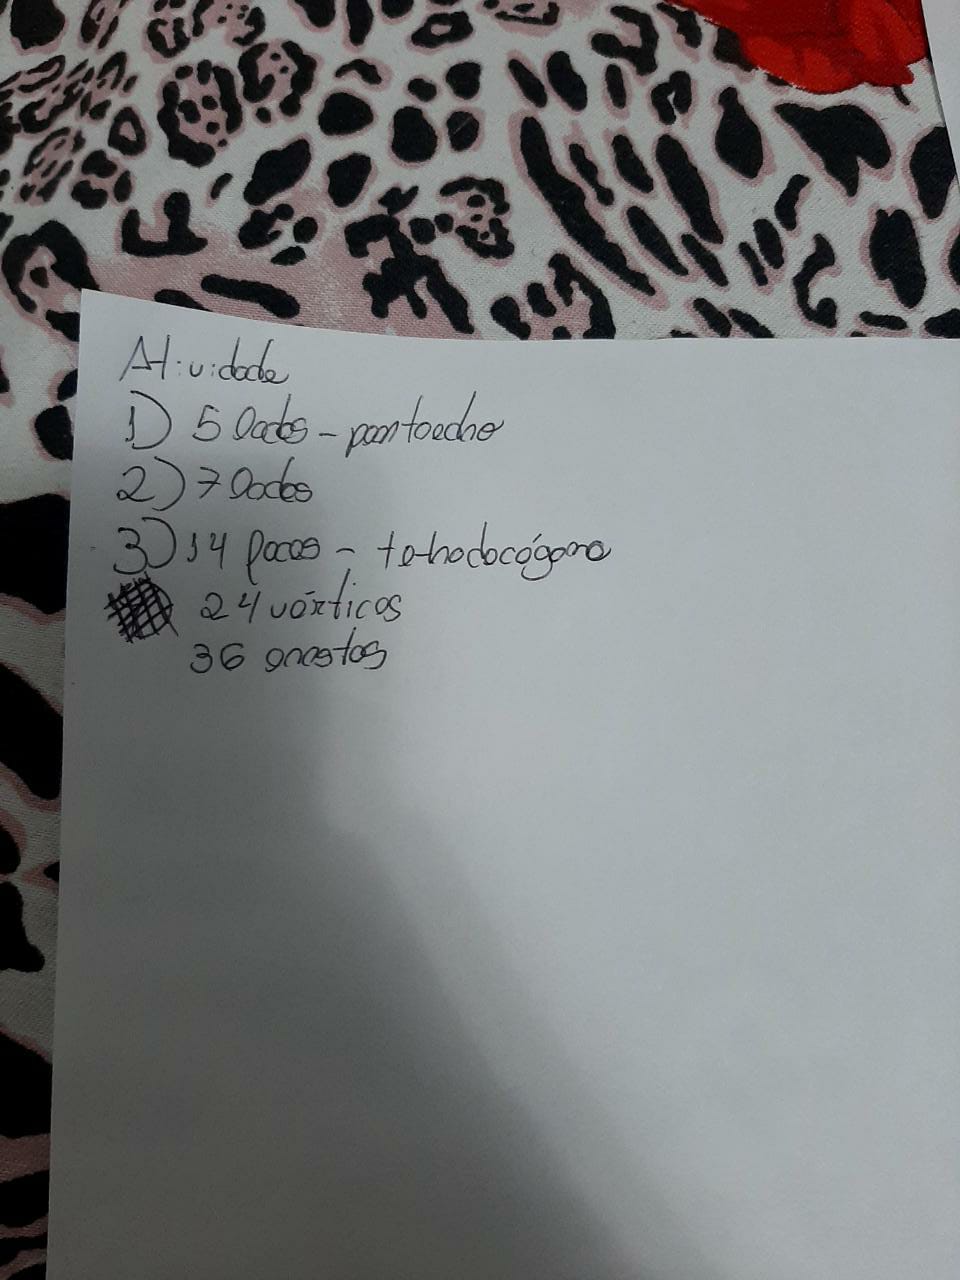 Atividade
1) 5 lados - pentaedro
2) 7 lados
3) 14 faces - tetradecágono
24 vértices
36 arestas